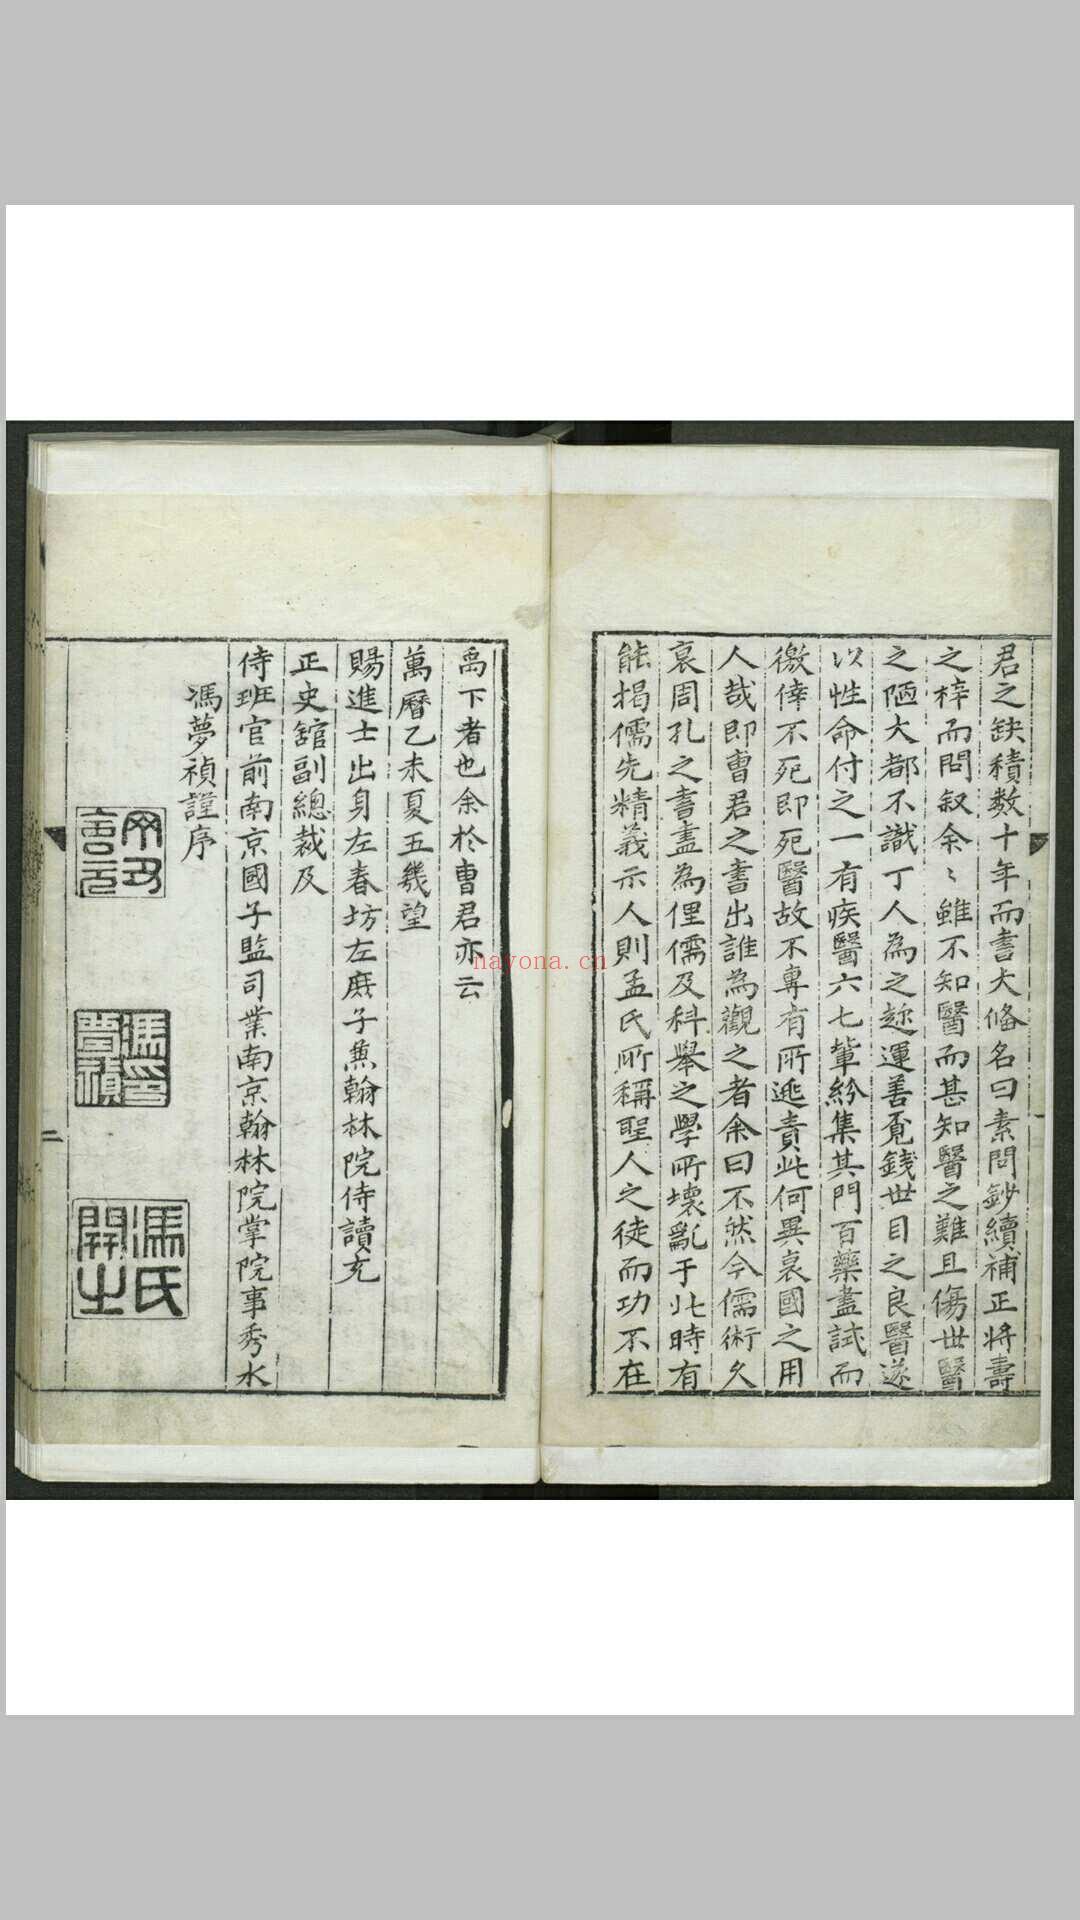 君之缺積数十年而書大俻名曰素問鈔續補正將壽
之梓而問叙余〻雖不知醫而甚知醫之難且傷世醫
之陋大都不識丁人為之趂運善覔錢世目之良醫遂
以性命付之一有疾醫六七輩紛集其門百藥盡試而
徼倖不死即死醫故不專有所逃責此何異衰國之用
人哉即曹君之書出誰為觀之者余曰不然今儒術久
衰周孔之書盡為俚儒及科舉之學所壞亂于此時有
能掲儒先精義示人則孟氏所稱聖人之徒而功不在
禹下者也余於曹君亦云
萬曆乙未夏五幾望
賜進士出身左春坊左庶子蒹翰林院侍讀充
正史舘副總裁及
侍班官前南京國子監司業南京翰林院掌院事秀水
馮夢禎謹序
丁丑會元
馮印夢禎
馮氏開之
二
nayona.cn